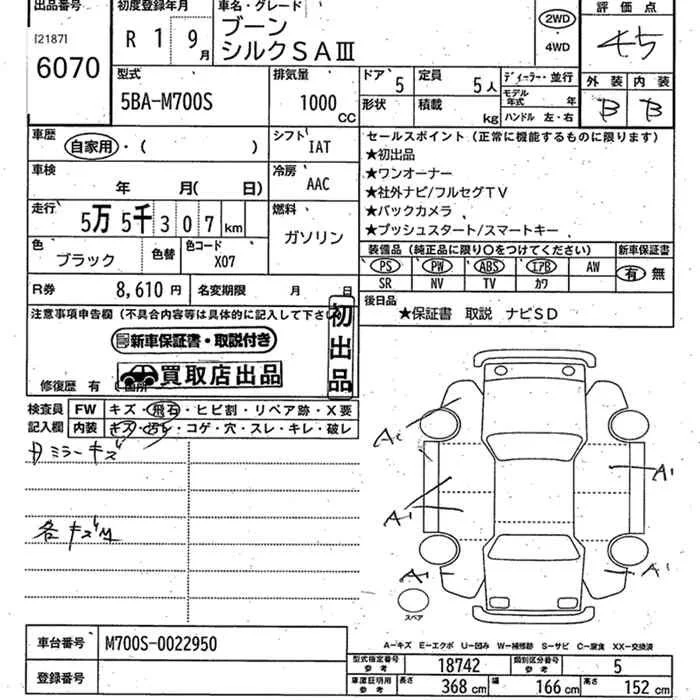 出品番号 初度登録年月 車名・グレード 評価点
[2187] R 1 9月 ブーン 2WD 45
6070 シルクSAⅢ 4WD
外装 内装
型式 排気量 ドア 5 定員 5人 ディーラー・並行 B B
5BA-M700S 1000 CC 形状 積載 kg モデル年式 年
ハンドル 左・右
車歴 自家用・( ) シフト IAT セールスポイント(正常に機能するものに限ります)
★初出品
車検 年 月( 日) 冷房 AAC ★ワンオーナー
★社外ナビ/フルセグTV
走行 5万5千307km 燃料 ガソリン ★バックカメラ
★プッシュスタート/スマートキー
色 ブラック 色替 色コード X07 装備品(純正品に限り○をつけてください) 新車保証書
PS PW ABS エアB AW 有 無
SR NV TV カワ
R券 8,610円 名変期限 月 日 後日品
★保証書 取説 ナビSD
注意事項申告欄(不具合内容等は具体的に記入して下さい
初出品
新車保証書・取説付き
買取店出品
修復歴 有 ( 箇所
検査員 FW キズ・飛石・ヒビ割・リペア跡・X要
記入欄 内装 キズ・汚レ・コゲ・穴・スレ・キレ・破レ
ミラーキズ
各キズ
A1
A1
A1
A1
スペア
A−キズ E−エクボ U−凹み W−補修跡 S−サビ C−腐食 XX−交換済
車台番号 M700S-0022950
型式指定番号 参考 18742 類別区分番号 参考 5
登録番号 車庫証明用 参考 長さ 368 cm 幅 166 cm 高さ 152 cm